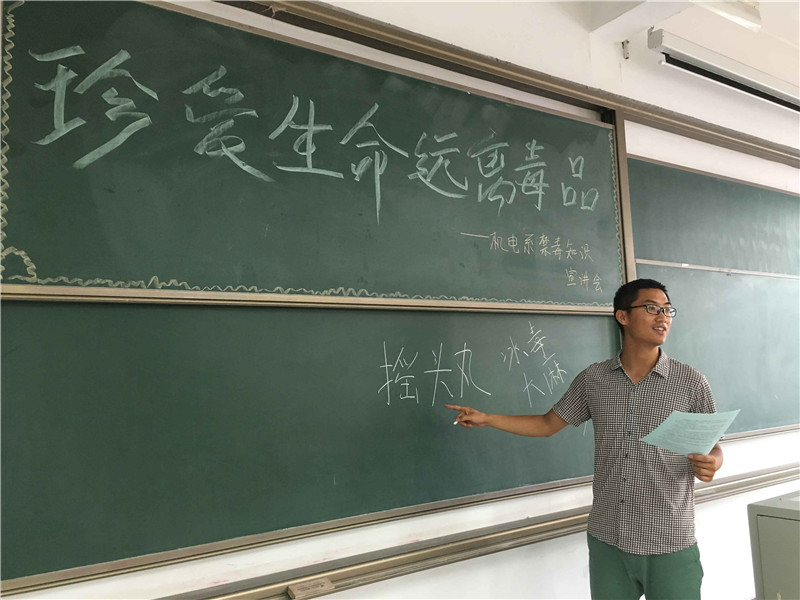 珍爱生命远离毒品
——机电系禁毒知识
宣讲会
摇头丸
冰毒
大麻